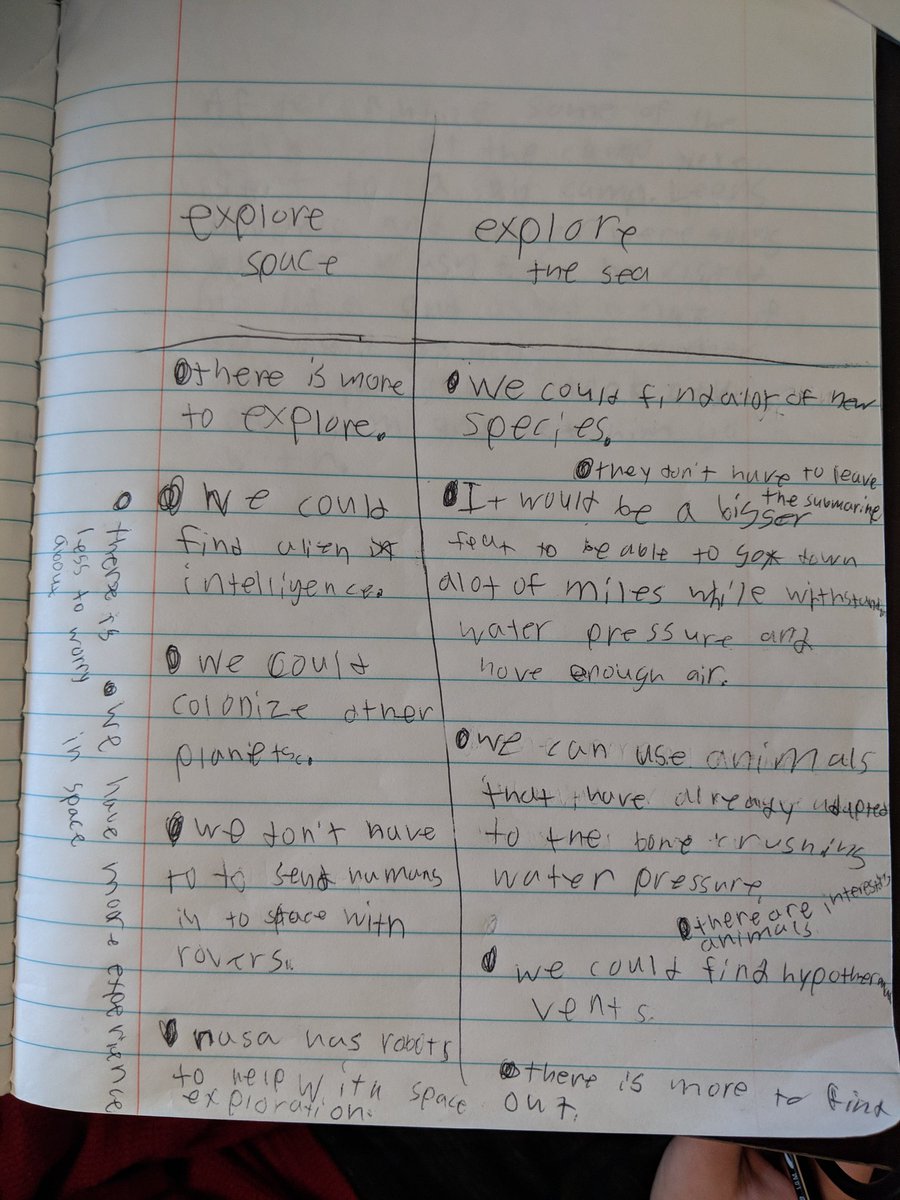 explore
space
there is more
to explore.
We could
find alien
intelligence.
we could
colonize other
planets.
we don't have
to to send humans
in to space with
rovers.
nasa has robots
to help with space
exploration.
there is
less to worry
about
we have more experience
in space
explore
the sea
We could find alot of new
species.
they don't have to leave
the submarine
It would be a bigger
feat to be able to go down
alot of miles while withstand
water pressure and
have enough air.
we can use animals
that have already adapted
to the bone crushing
water pressure
there are
animals.
we could find
vents.
there is more to find
out.